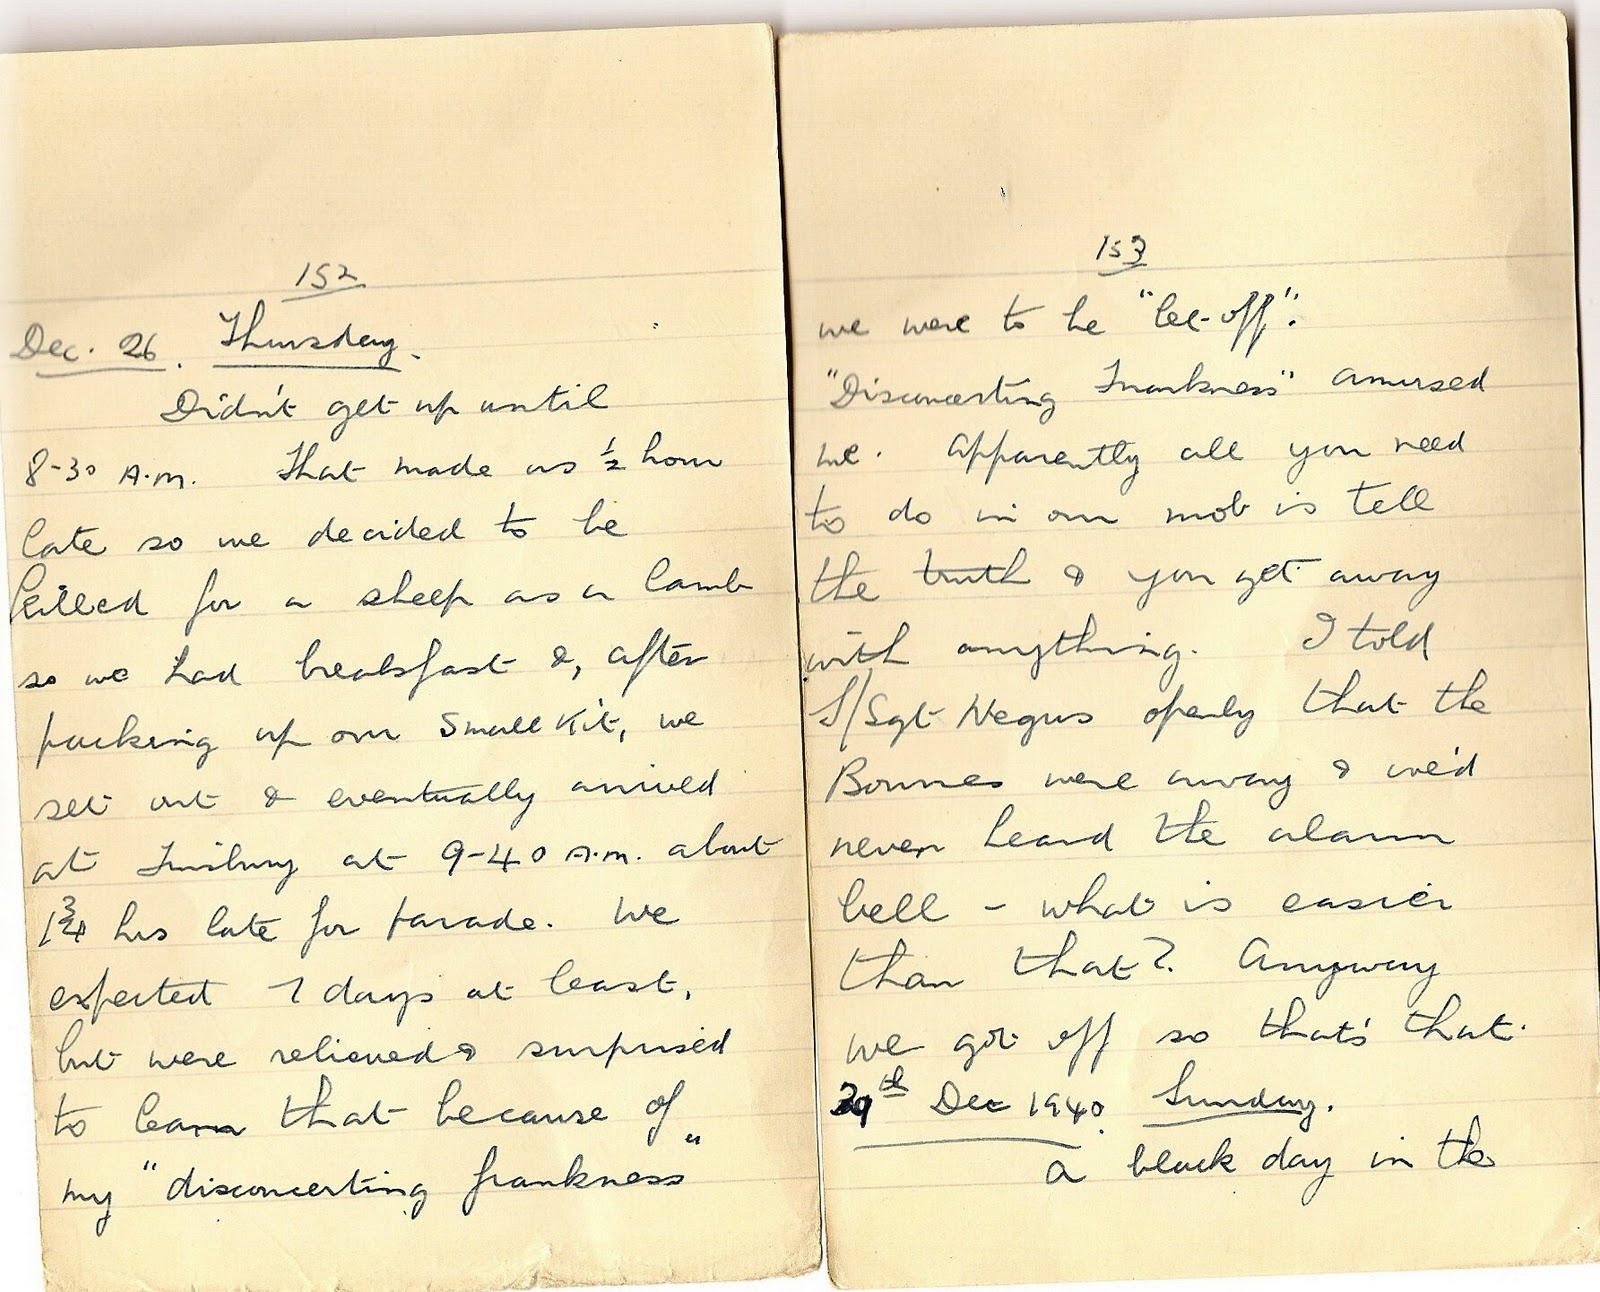 152
Dec. 26. Thursday.
Didn't get up until
8-30 A.M. That made us ½ hour
late so we decided to be
killed for a sheep as a lamb
so we had breakfast &, after
packing up our small kit, we
set out & eventually arrived
at Finsbury at 9-40 A.M. about
1¾ hrs late for parade. We
expected 7 days at least,
but were relieved & surprised
to learn that because of
my "disconcerting frankness"
153
we were to be "let-off".
"Disconcerting Frankness" amused
me. Apparently all you need
to do in our mob is tell
the truth & you get away
with anything. I told
S/Sgt Negus openly that the
Bournes were away & we'd
never heard the alarm
bell – what is easier
than that? Anyway
we got off so that's that.
29th Dec 1940. Sunday.
A black day in the